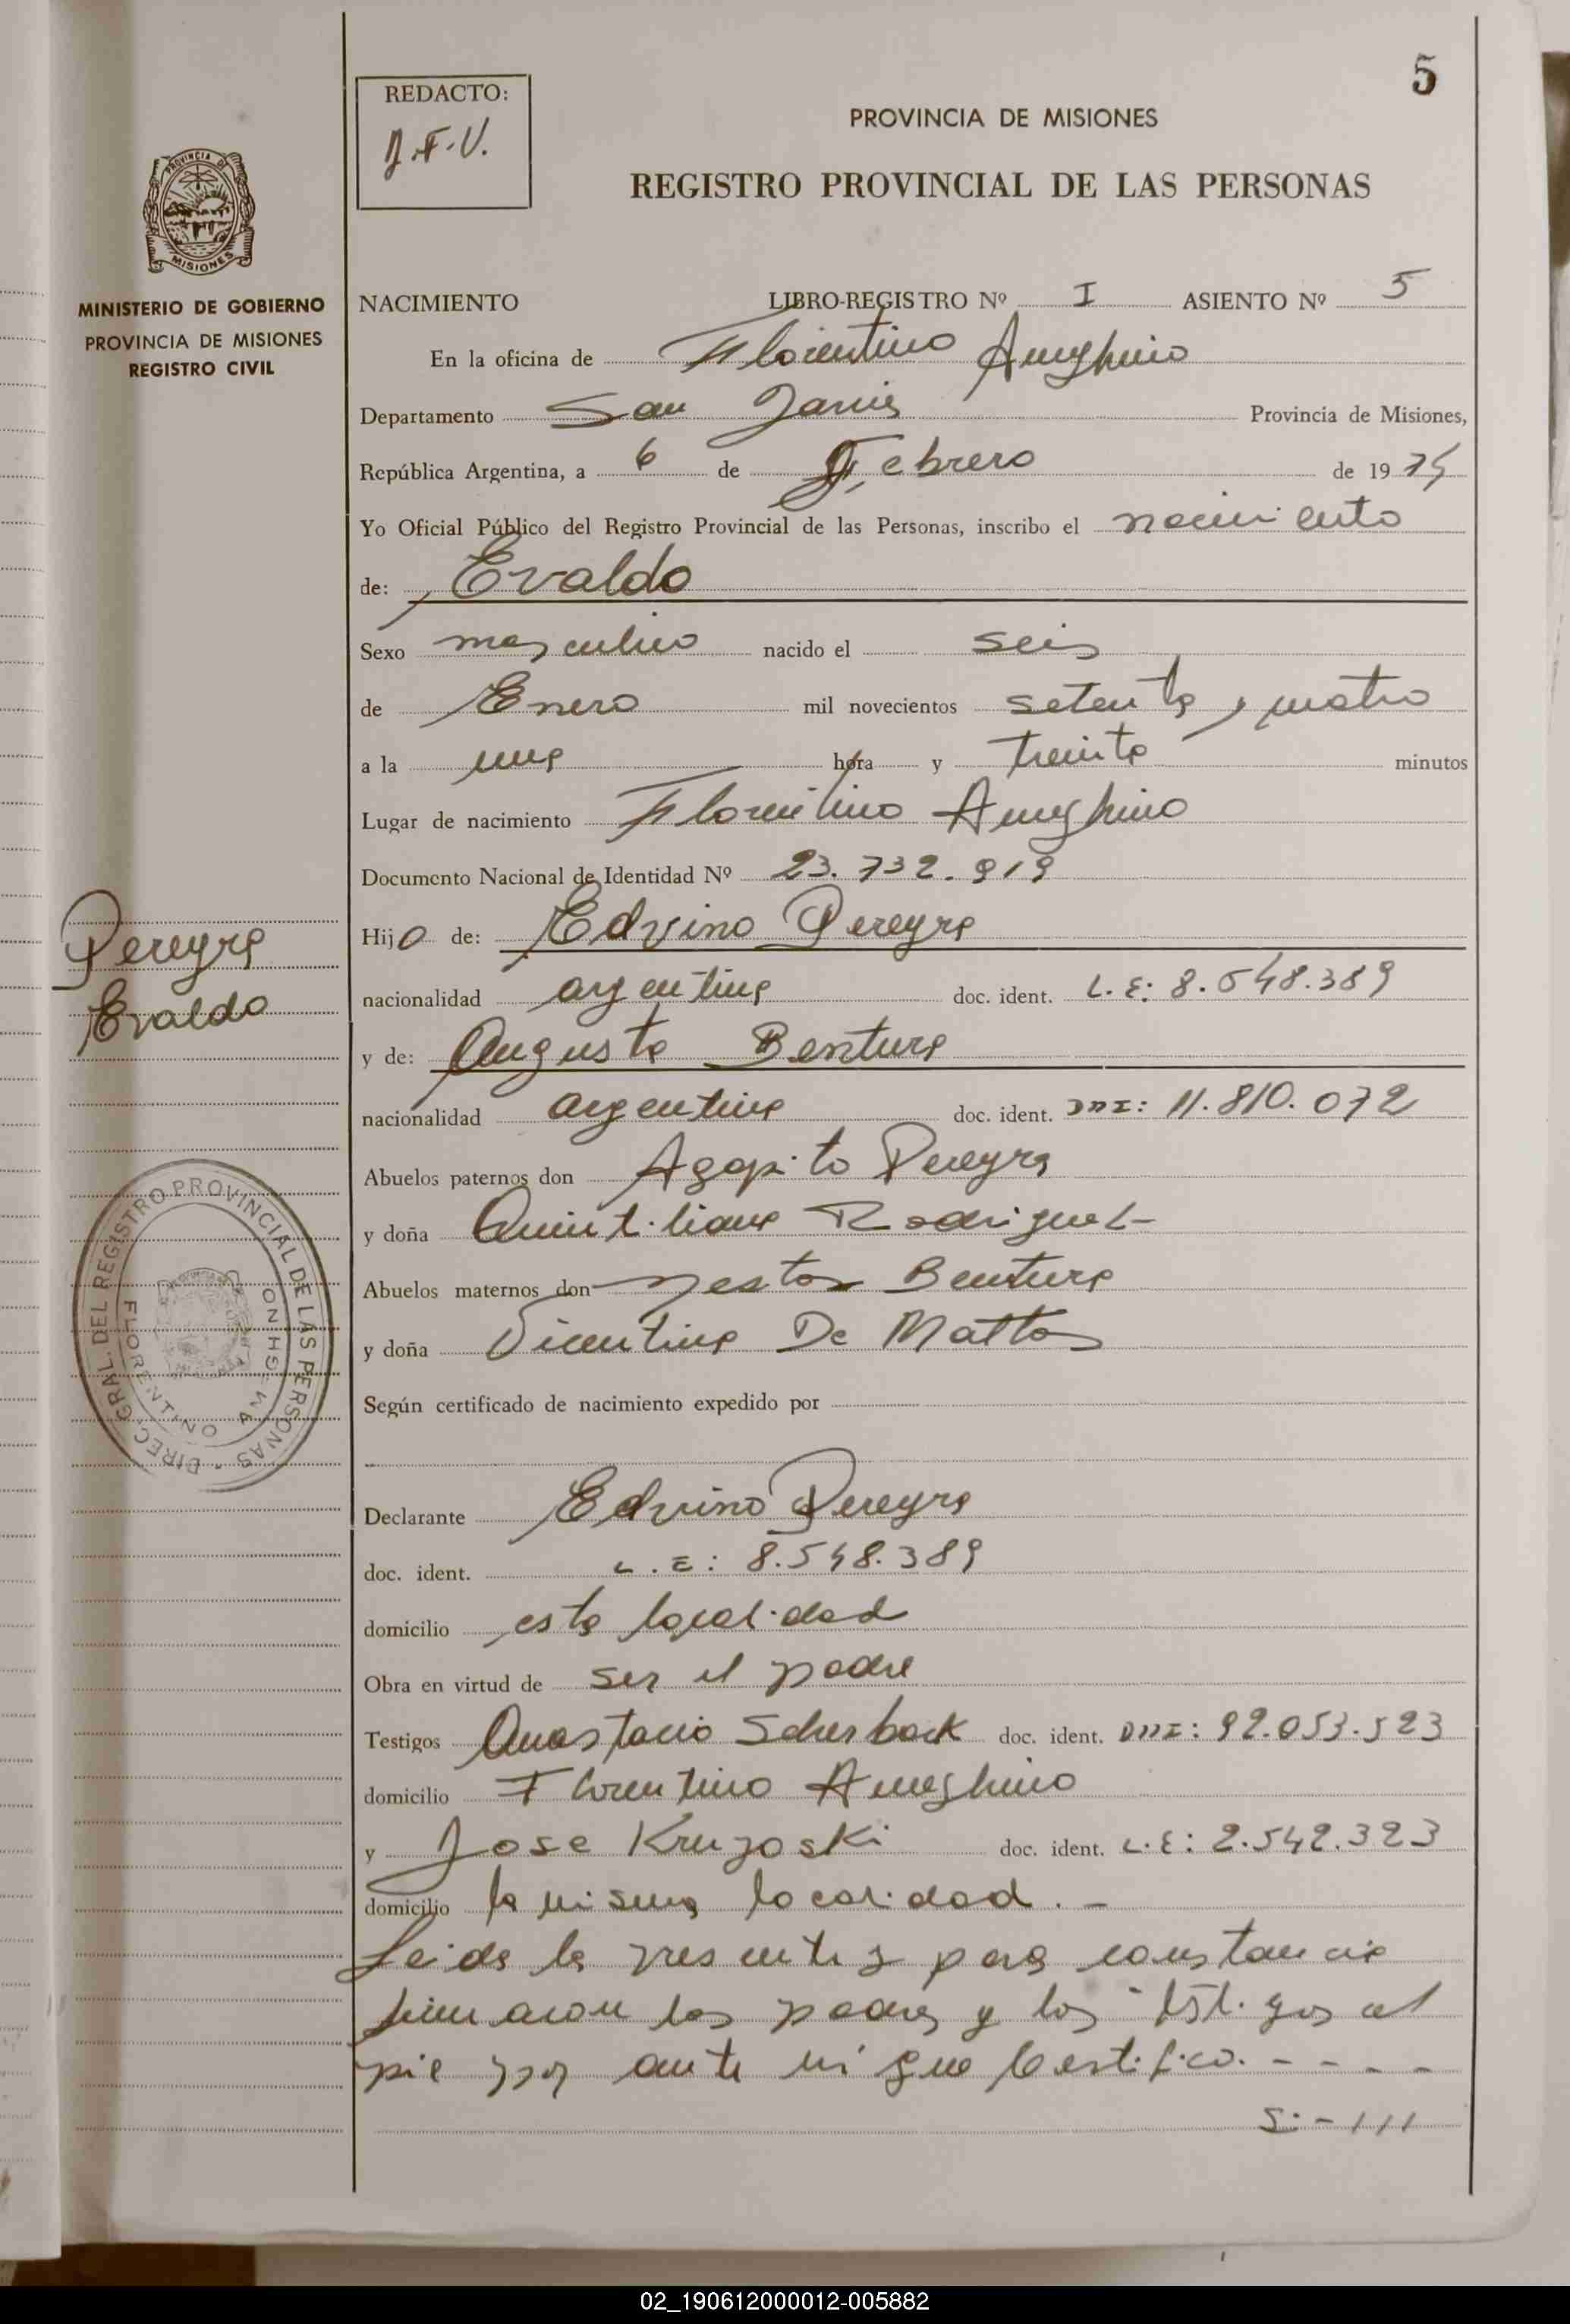 5
REDACTO:
J.F.V.
PROVINCIA DE MISIONES
REGISTRO PROVINCIAL DE LAS PERSONAS
PROVINCIA DE
MISIONES
MINISTERIO DE GOBIERNO
PROVINCIA DE MISIONES
REGISTRO CIVIL
NACIMIENTO LIBRO-REGISTRO Nº I ASIENTO Nº 5
En la oficina de Florentino Ameghino
Departamento San Javier Provincia de Misiones,
República Argentina, a 6 de Febrero de 1974
Yo Oficial Público del Registro Provincial de las Personas, inscribo el nacimiento
de: Evaldo
Sexo masculino nacido el seis
de Enero mil novecientos setenta y cuatro
a la una hora y treinta minutos
Lugar de nacimiento Florentino Ameghino
Documento Nacional de Identidad Nº 23.732.919
Hijo de: Edvino Pereyra
Pereyra
Evaldo
nacionalidad argentina doc. ident. L.E: 8.548.389
y de: Augusta Bentura
nacionalidad argentina doc. ident. DNI: 11.810.072
Abuelos paternos don Agapito Pereyra
y doña Quintiliana Rodriguez
Abuelos maternos don Nestor Bentura
y doña Vicentina De Mattos
DIREC. GRAL. DEL REGISTRO PROVINCIAL DE LAS PERSONAS
FLORENTINO AMEGHINO
Según certificado de nacimiento expedido por
Declarante Edvino Pereyra
doc. ident. L.E: 8.548.389
domicilio esta localidad
Obra en virtud de ser el padre
Testigos Anastacio Scherback doc. ident. DNI: 92.053.523
domicilio Florentino Ameghino
y Jose Kruzoski doc. ident. L.E: 2.542.323
domicilio la misma localidad.-
Leida la presente y para constancia
firmaron los padres y los testigos al
pie por ante mi que Certifico. - - - -
S:-111
02_190612000012-005882